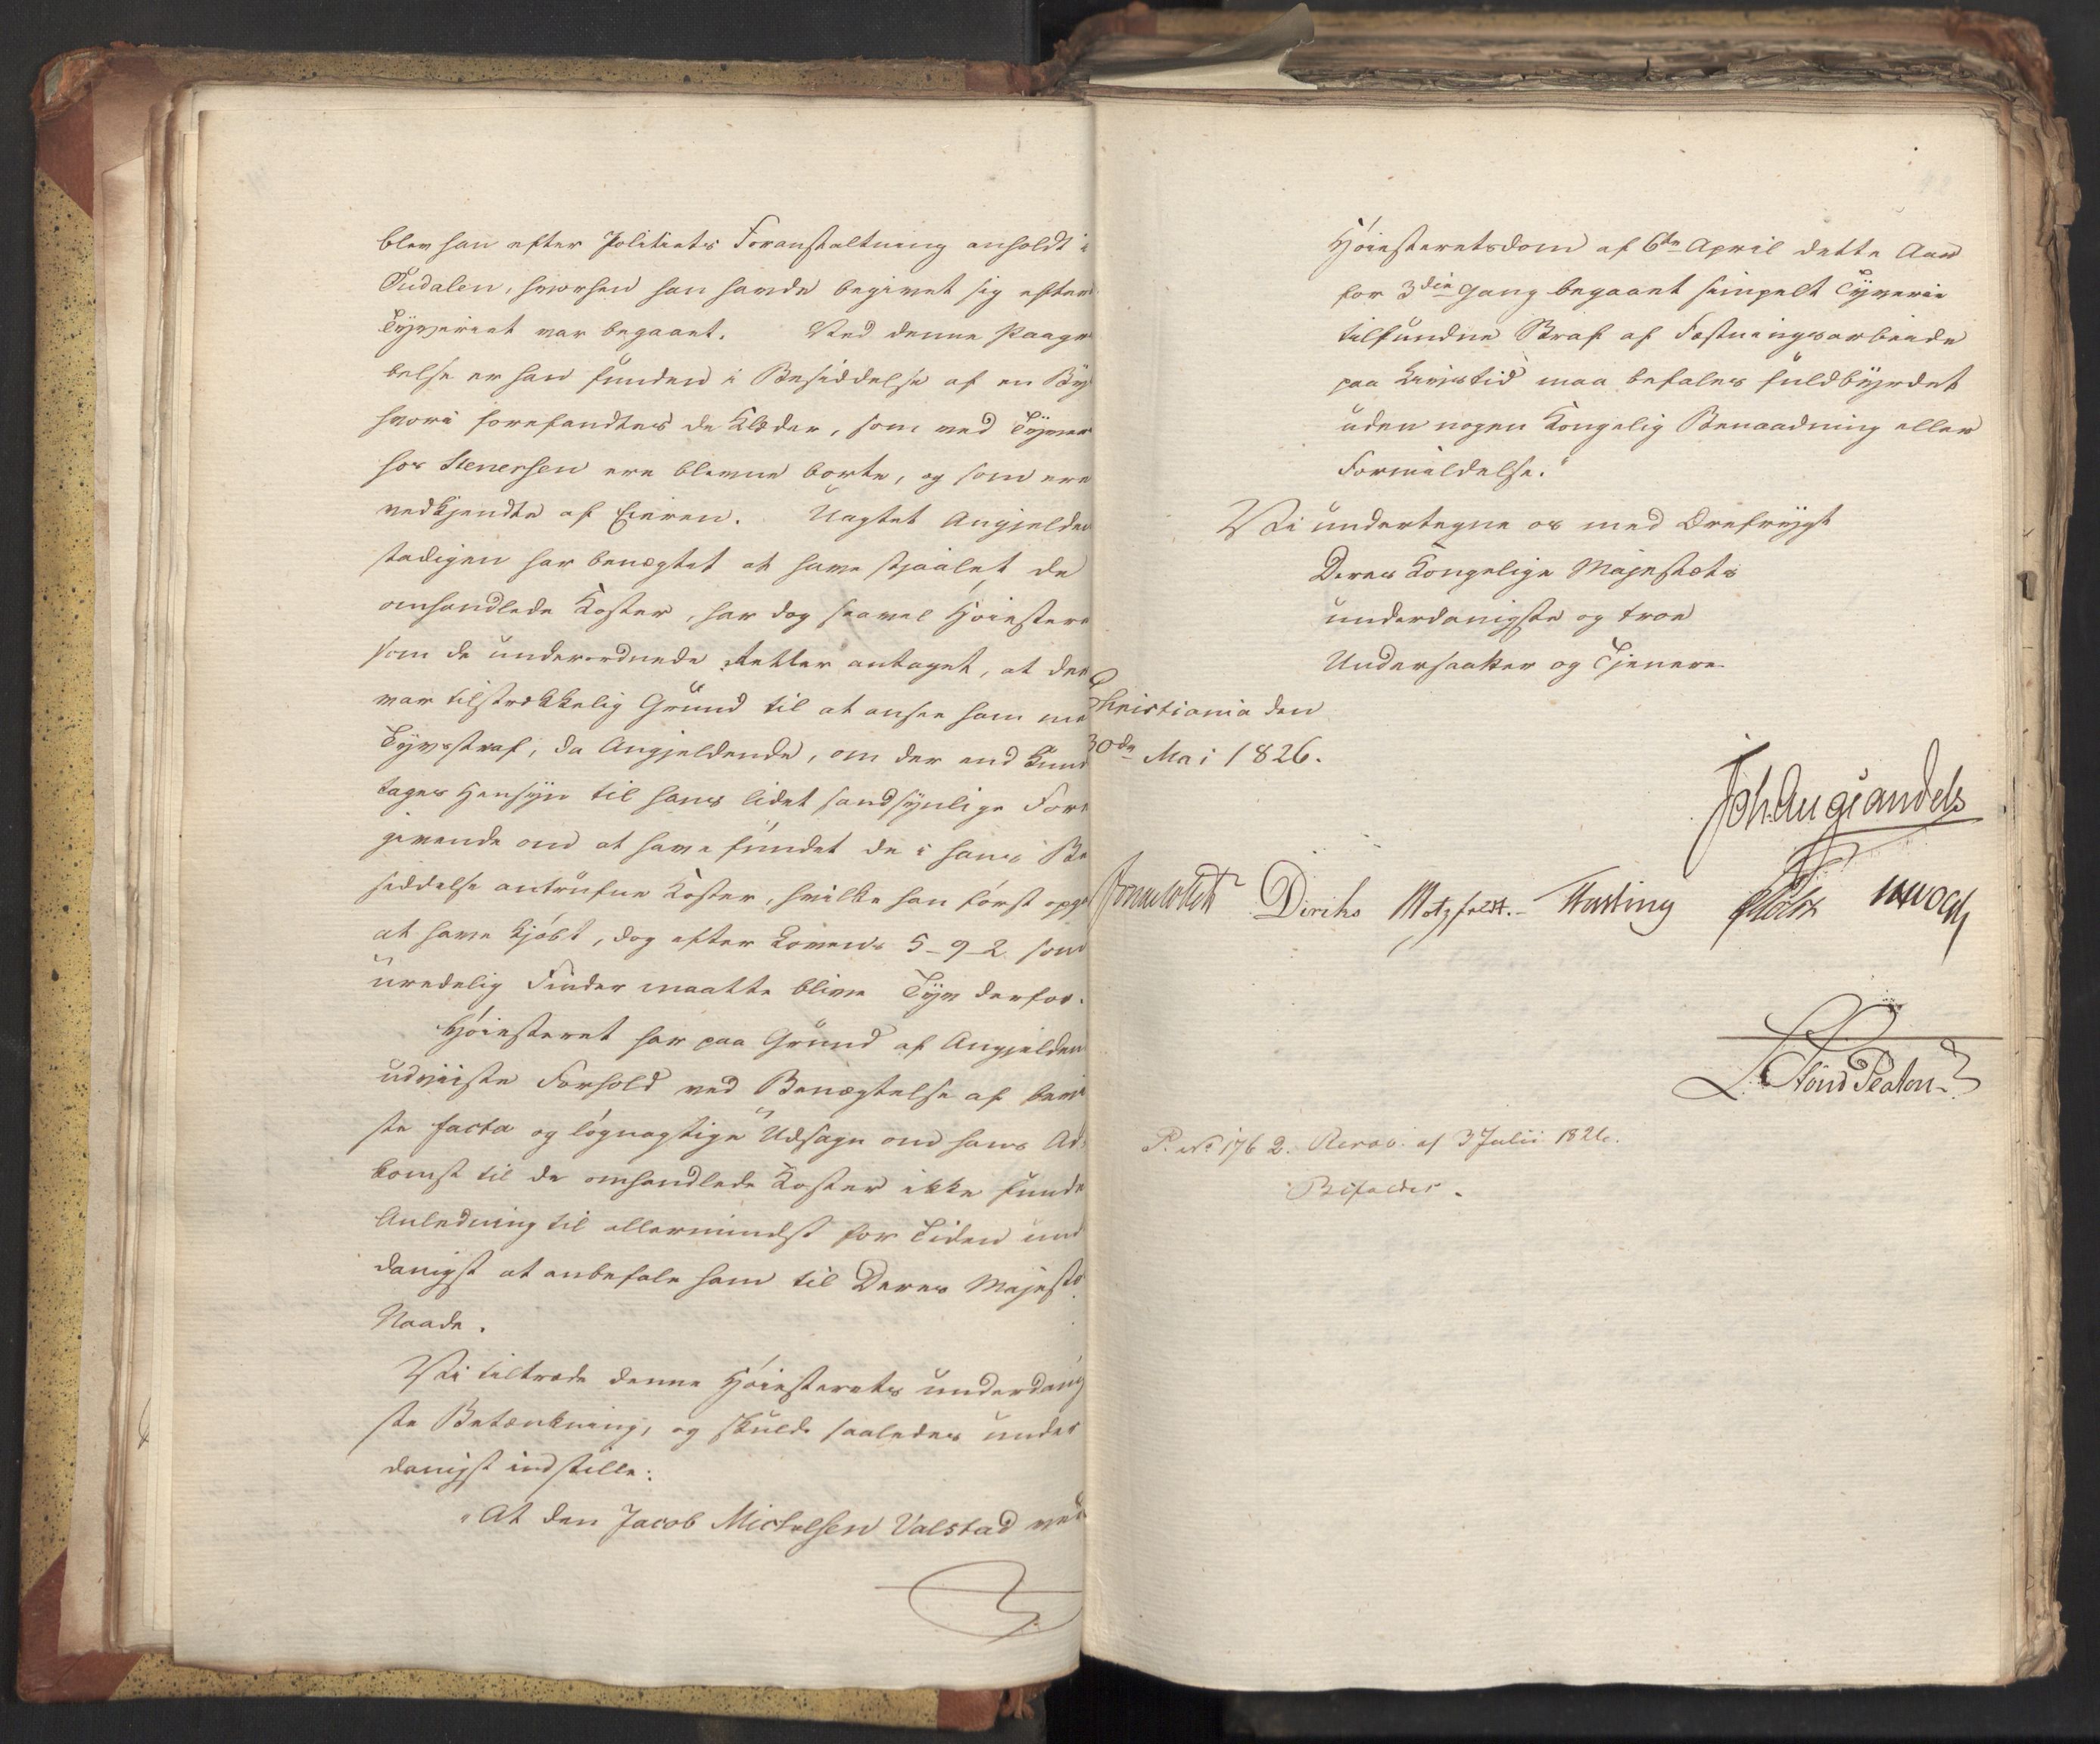 blev han efter Politiets Foranstaltning anholdt i
Tudalen, hvorhen han havde begivet sig efter
Tyveriet var begaaet. Ved denne Paagri
belse er han funden i Besiddelse af en Byl
hvori forefandtes de Klæder, som ved Tyver
hos Stenersen ere blevne borte, og som ere
vedkjendte af Eieren. Uagtet Angjelden
stadigen har benægtet at have stjaalet de
omhandlede Koster, har dog saavel Høiestere
som de underordnede Retter antaget, at der
var tilstrækkelig Grund til at ansee ham me
Tyvsstraf, da Angjeldende, om der end kund
tages Hensyn til hans lidet sandsynlige Fore
givende om at have fundet de i hans Be
siddelse antrufne Koster, hvilke han først opga
at have kjøbt, dog efter Lovens 5-9-2 som
uredelig Finder maatte blive Tyv derfor.
Høiesteret har paa Grund af Angjelden
udviiste Forhold ved Benægtelse af bevi
ste facta og løgnagtige Udsagn om hans Ad-
komst til de omhandlede Koster ikke funde
Anledning til allermindst for Tiden und
danigst at anbefale ham til Deres Majestæ
Naade.
Vi tiltræde denne Høiesterets underdanig
ste Betænkning, og skulde saaledes under
danigst indstille:
"At den Jacob Michelsen Valstad ved
Høiesteretsdom af 6te April dette Aar
for 3die Gang begaaet simpelt Tyverie
tilfundne Straf af Fæstningsarbeide
paa Livstid maa befales fuldbyrdet
uden nogen Kongelig Benaadning eller
Formildelse."
Vi undertegne os med Ærefrygt
Deres Kongelige Majestæts
underdanigste og troe
Undersaatter og Tjenere
Christiania den
30de Mai 1826.
Joh. Aug. Sandels
Diriks Motzfeldt. Fasting
L. Stoud Platou
P. No 176 2. Resol. af 3 Julii 1826.
Bifaldes.